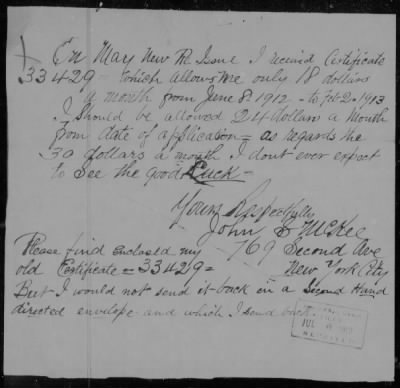 On May New R. Issue I received Certificate
33429 = which allows me only 18 dollars
a month from June 8. 1912 - to Feb-2-1913
I should be allowed 24 dollars a Month
from date of application = as regards the
30 dollars a month I dont ever expect
to see the good Luck -
Yours Respectfully
John McKee
769 Second Ave
New York City
Please find enclosed my
old Certificate = 33429 =
But I would not send it back in a Second Hand
directed envelope and which I send back